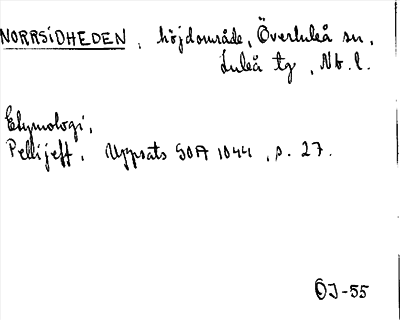 NORRSIDHEDEN, höjdområde, Överluleå sn,
Luleå tg, Nb. l.
Etymologi,
Pellijeff, Uppsats SOA 1044, s. 27.
ÖJ-55